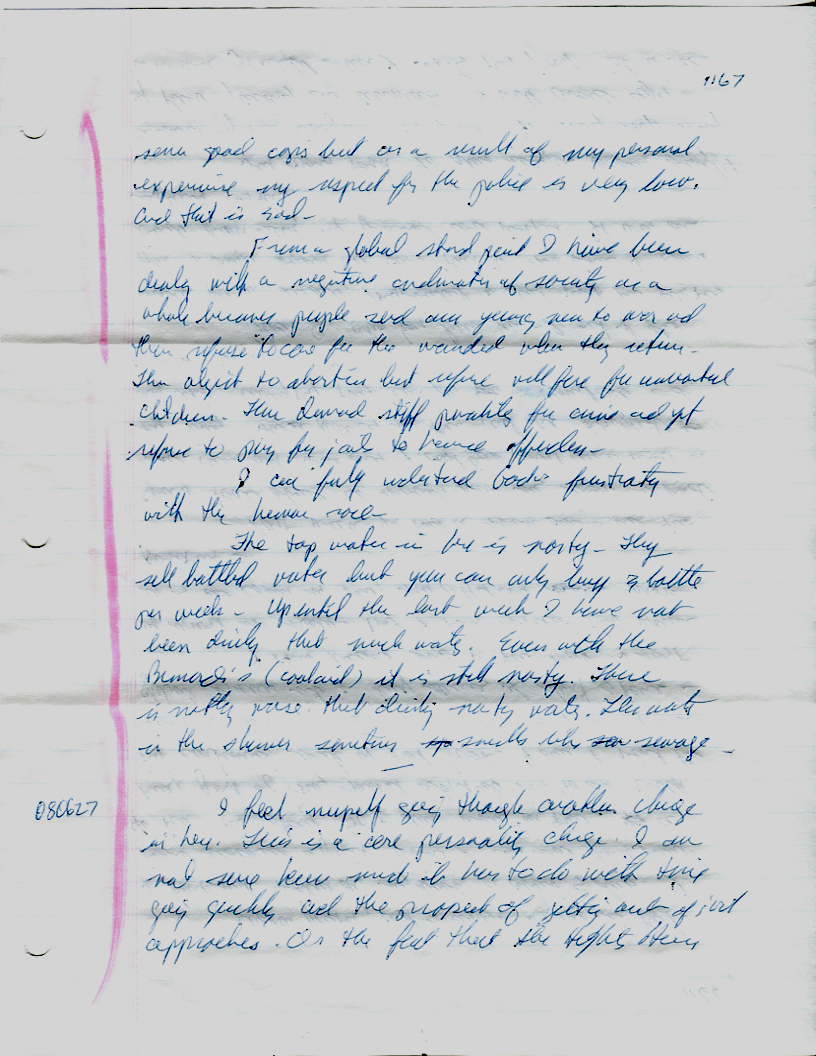 1167
some good cops but as a result of my personal
experience my respect for the police is very low.
and that is sad-
From a global stand point I have been
dealing with a negative of society as a
whole because people send our young men to war and
then refuse to care for the wounded when they return.
They object to abortion but refuse for unwanted
children. They demand stiff penalties for crime and yet
refuse to pay for jails to house offenders-
I can fully understand God's frustration
with the human race-
The tap water in here is nasty- They
sell bottled water but you can only buy 3 bottle
per week- Up until the last week I have not
been drinking that much water. Even with the
(coolaid) it is still nasty. There
is nothing worse that drinking nasty water. The water
in the shower sometimes smells like sewage-
080627
I feel myself going through another change
in here. This is a core personality change. I am
not sure how much it has to do with time
going quickly and the prospect of getting out of jail
approaches. Or the fact that the